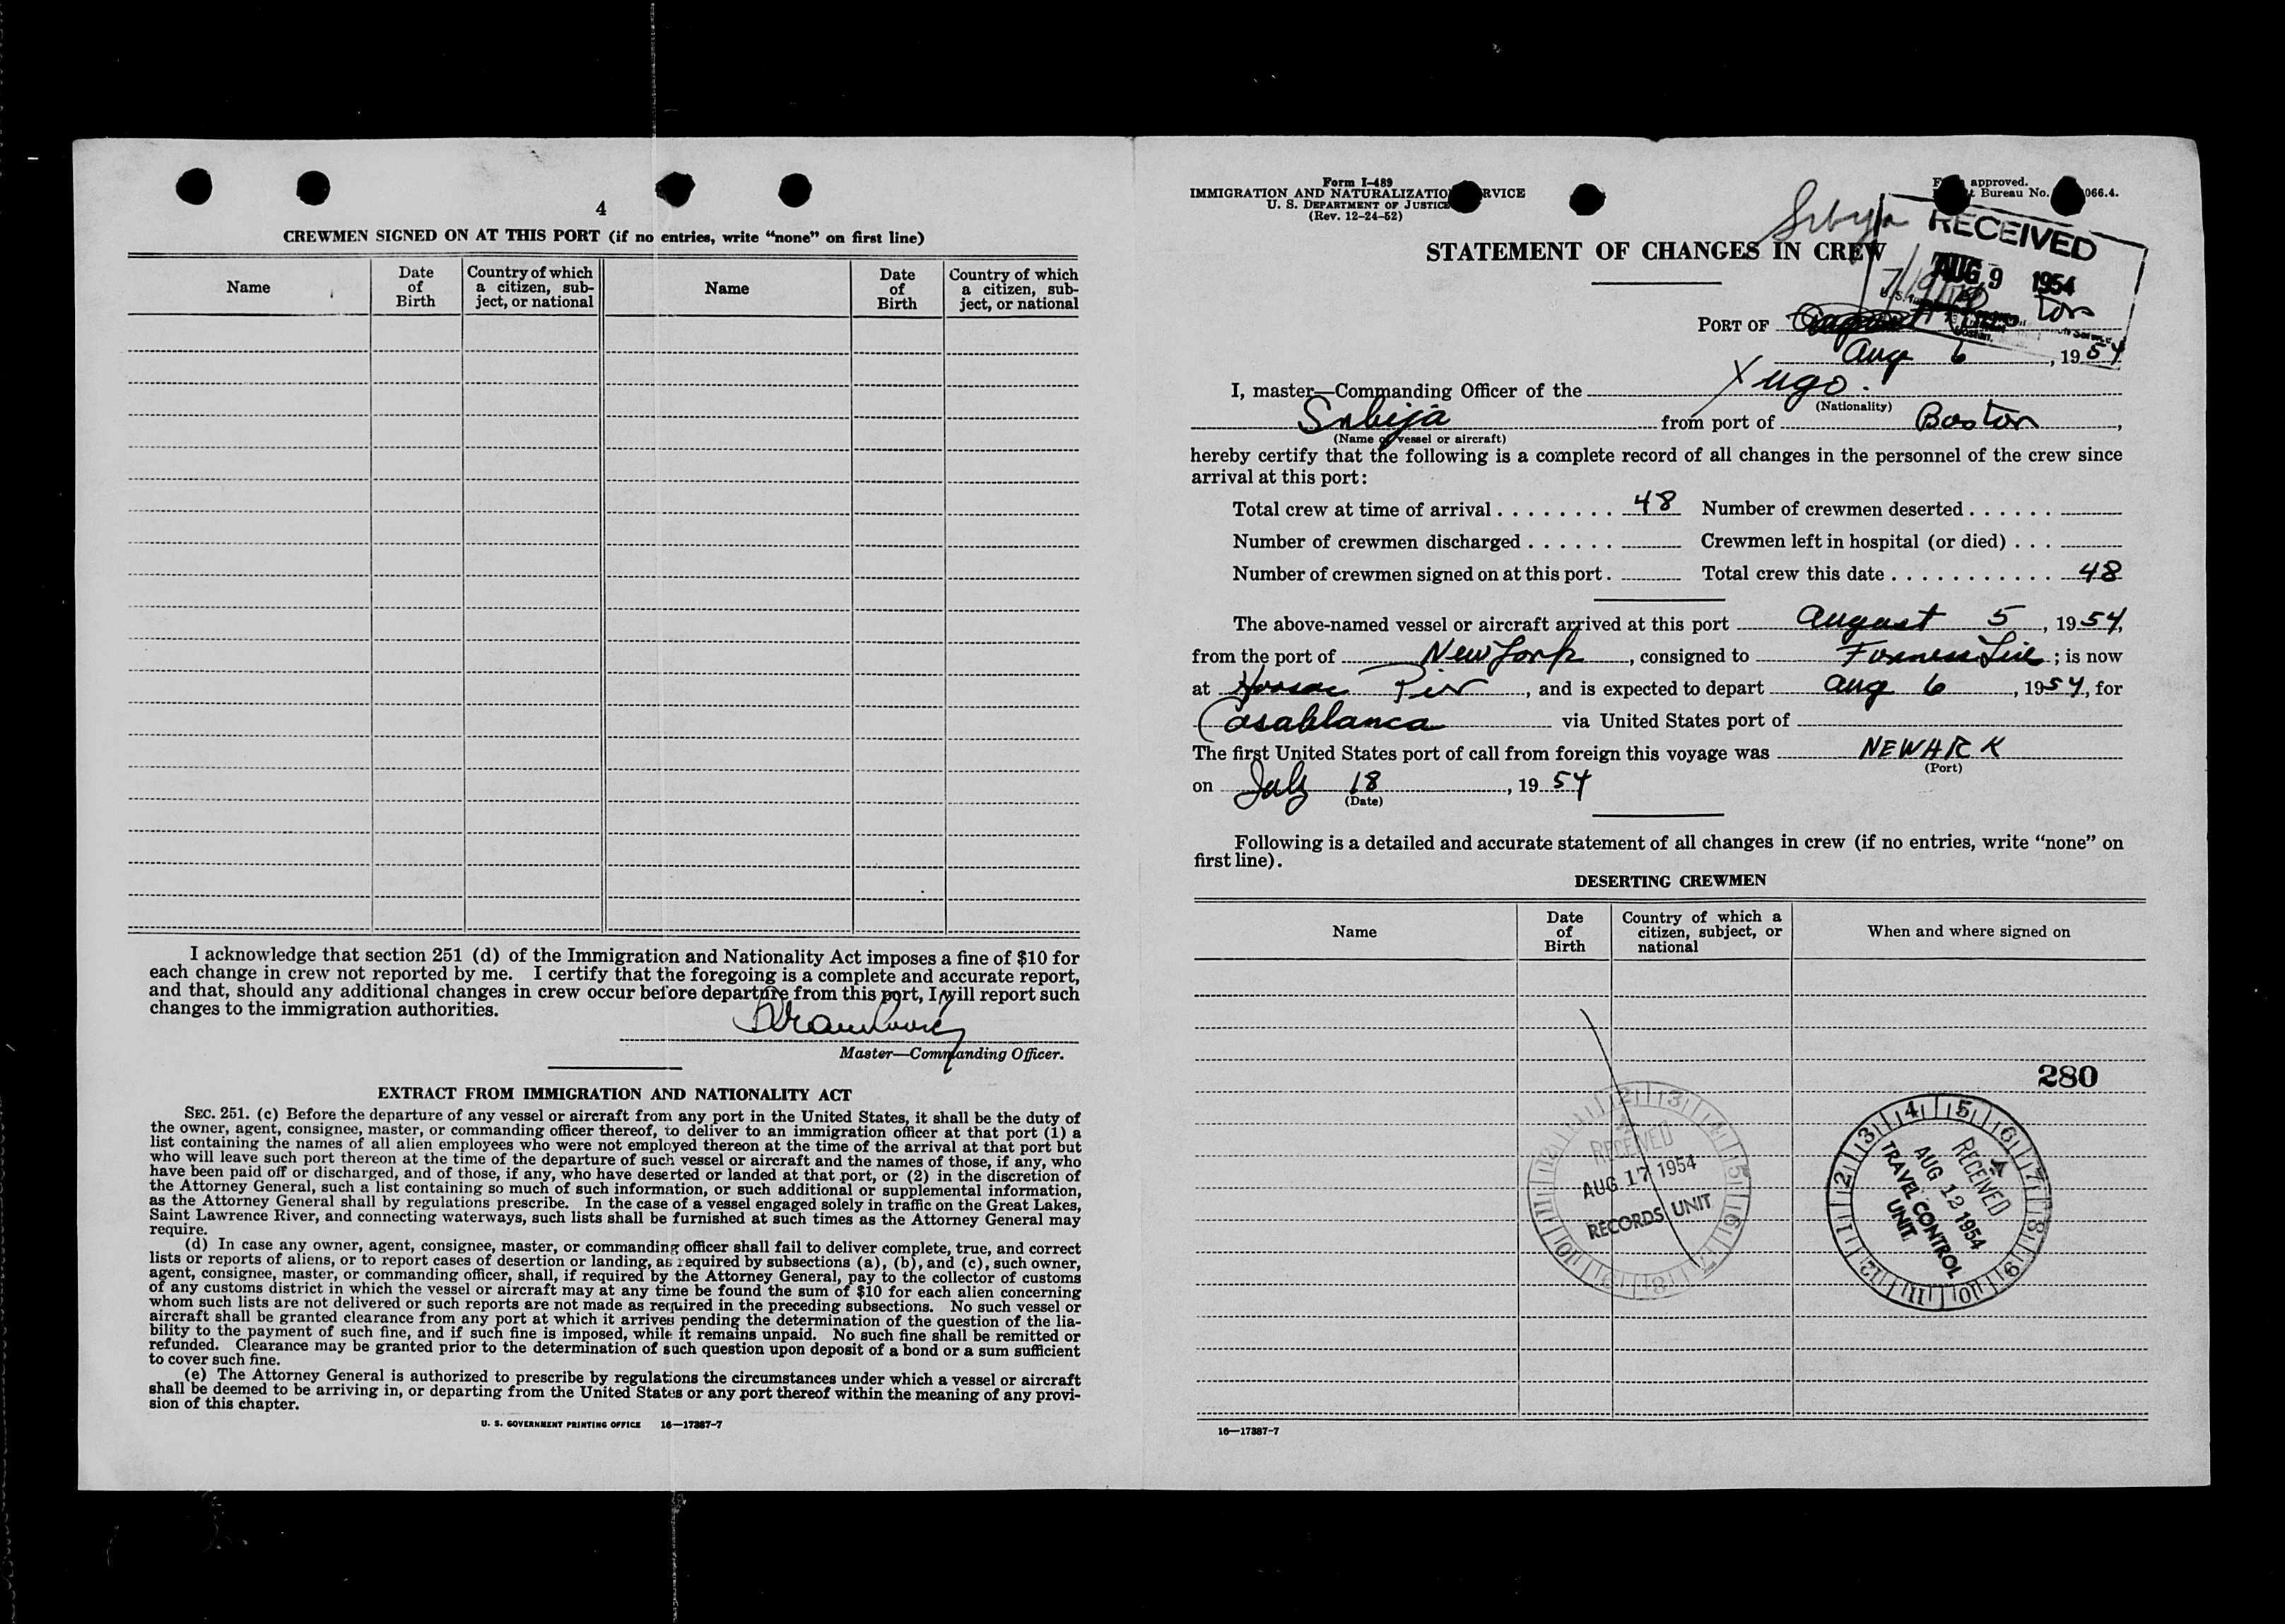 4
CREWMEN SIGNED ON AT THIS PORT (if no entries, write “none” on first line)
Name
Date of Birth
Country of which a citizen, subject, or national
Name
Date of Birth
Country of which a citizen, subject, or national
I acknowledge that section 251 (d) of the Immigration and Nationality Act imposes a fine of $10 for
each change in crew not reported by me. I certify that the foregoing is a complete and accurate report,
and that, should any additional changes in crew occur before departure from this port, I will report such
changes to the immigration authorities.
Master—Commanding Officer.
EXTRACT FROM IMMIGRATION AND NATIONALITY ACT
SEC. 251. (c) Before the departure of any vessel or aircraft from any port in the United States, it shall be the duty of
the owner, agent, consignee, master, or commanding officer thereof, to deliver to an immigration officer at that port (1) a
list containing the names of all alien employees who were not employed thereon at the time of the arrival at that port but
who will leave such port thereon at the time of the departure of such vessel or aircraft and the names of those, if any, who
have been paid off or discharged, and of those, if any, who have deserted or landed at that port, or (2) in the discretion of
the Attorney General, such a list containing so much of such information, or such additional or supplemental information,
as the Attorney General shall by regulations prescribe. In the case of a vessel engaged solely in traffic on the Great Lakes,
Saint Lawrence River, and connecting waterways, such lists shall be furnished at such times as the Attorney General may
require.
(d) In case any owner, agent, consignee, master, or commanding officer shall fail to deliver complete, true, and correct
lists or reports of aliens, or to report cases of desertion or landing, as required by subsections (a), (b), and (c), such owner,
agent, consignee, master, or commanding officer, shall, if required by the Attorney General, pay to the collector of customs
of any customs district in which the vessel or aircraft may at any time be found the sum of $10 for each alien concerning
whom such lists are not delivered or such reports are not made as required in the preceding subsections. No such vessel or
aircraft shall be granted clearance from any port at which it arrives pending the determination of the question of the lia-
bility to the payment of such fine, and if such fine is imposed, while it remains unpaid. No such fine shall be remitted or
refunded. Clearance may be granted prior to the determination of such question upon deposit of a bond or a sum sufficient
to cover such fine.
(e) The Attorney General is authorized to prescribe by regulations the circumstances under which a vessel or aircraft
shall be deemed to be arriving in, or departing from the United States or any port thereof within the meaning of any provi-
sion of this chapter.
U. S. GOVERNMENT PRINTING OFFICE 16—17387-7
Form I-489
IMMIGRATION AND NATURALIZATIO RVICE
U. S. DEPARTMENT OF JUSTICE
(Rev. 12-24-52)
approved.
Bureau No. 066.4.
Srbija
RECEIVED
AUG 9 1954
STATEMENT OF CHANGES IN CREW
PORT OF
Aug 6, 1954
I, master—Commanding Officer of the Yugo.
(Nationality)
Srbija from port of Boston,
(Name of vessel or aircraft)
hereby certify that the following is a complete record of all changes in the personnel of the crew since
arrival at this port:
Total crew at time of arrival . . . . . . . . 48 Number of crewmen deserted . . . . . .
Number of crewmen discharged . . . . . . Crewmen left in hospital (or died) . . .
Number of crewmen signed on at this port . Total crew this date . . . . . . . . . . . 48
The above-named vessel or aircraft arrived at this port August 5, 1954,
from the port of New York, consigned to Furness Line; is now
at Hoosac Pier, and is expected to depart Aug 6, 1954, for
Casablanca via United States port of
The first United States port of call from foreign this voyage was NEWARK
(Port)
on July 18, 1954
(Date)
Following is a detailed and accurate statement of all changes in crew (if no entries, write “none” on
first line).
DESERTING CREWMEN
Name
Date of Birth
Country of which a citizen, subject, or national
When and where signed on
280
RECEIVED
AUG 17 1954
RECORDS UNIT
RECEIVED
AUG 12 1954
TRAVEL CONTROL
UNIT
16—17387-7